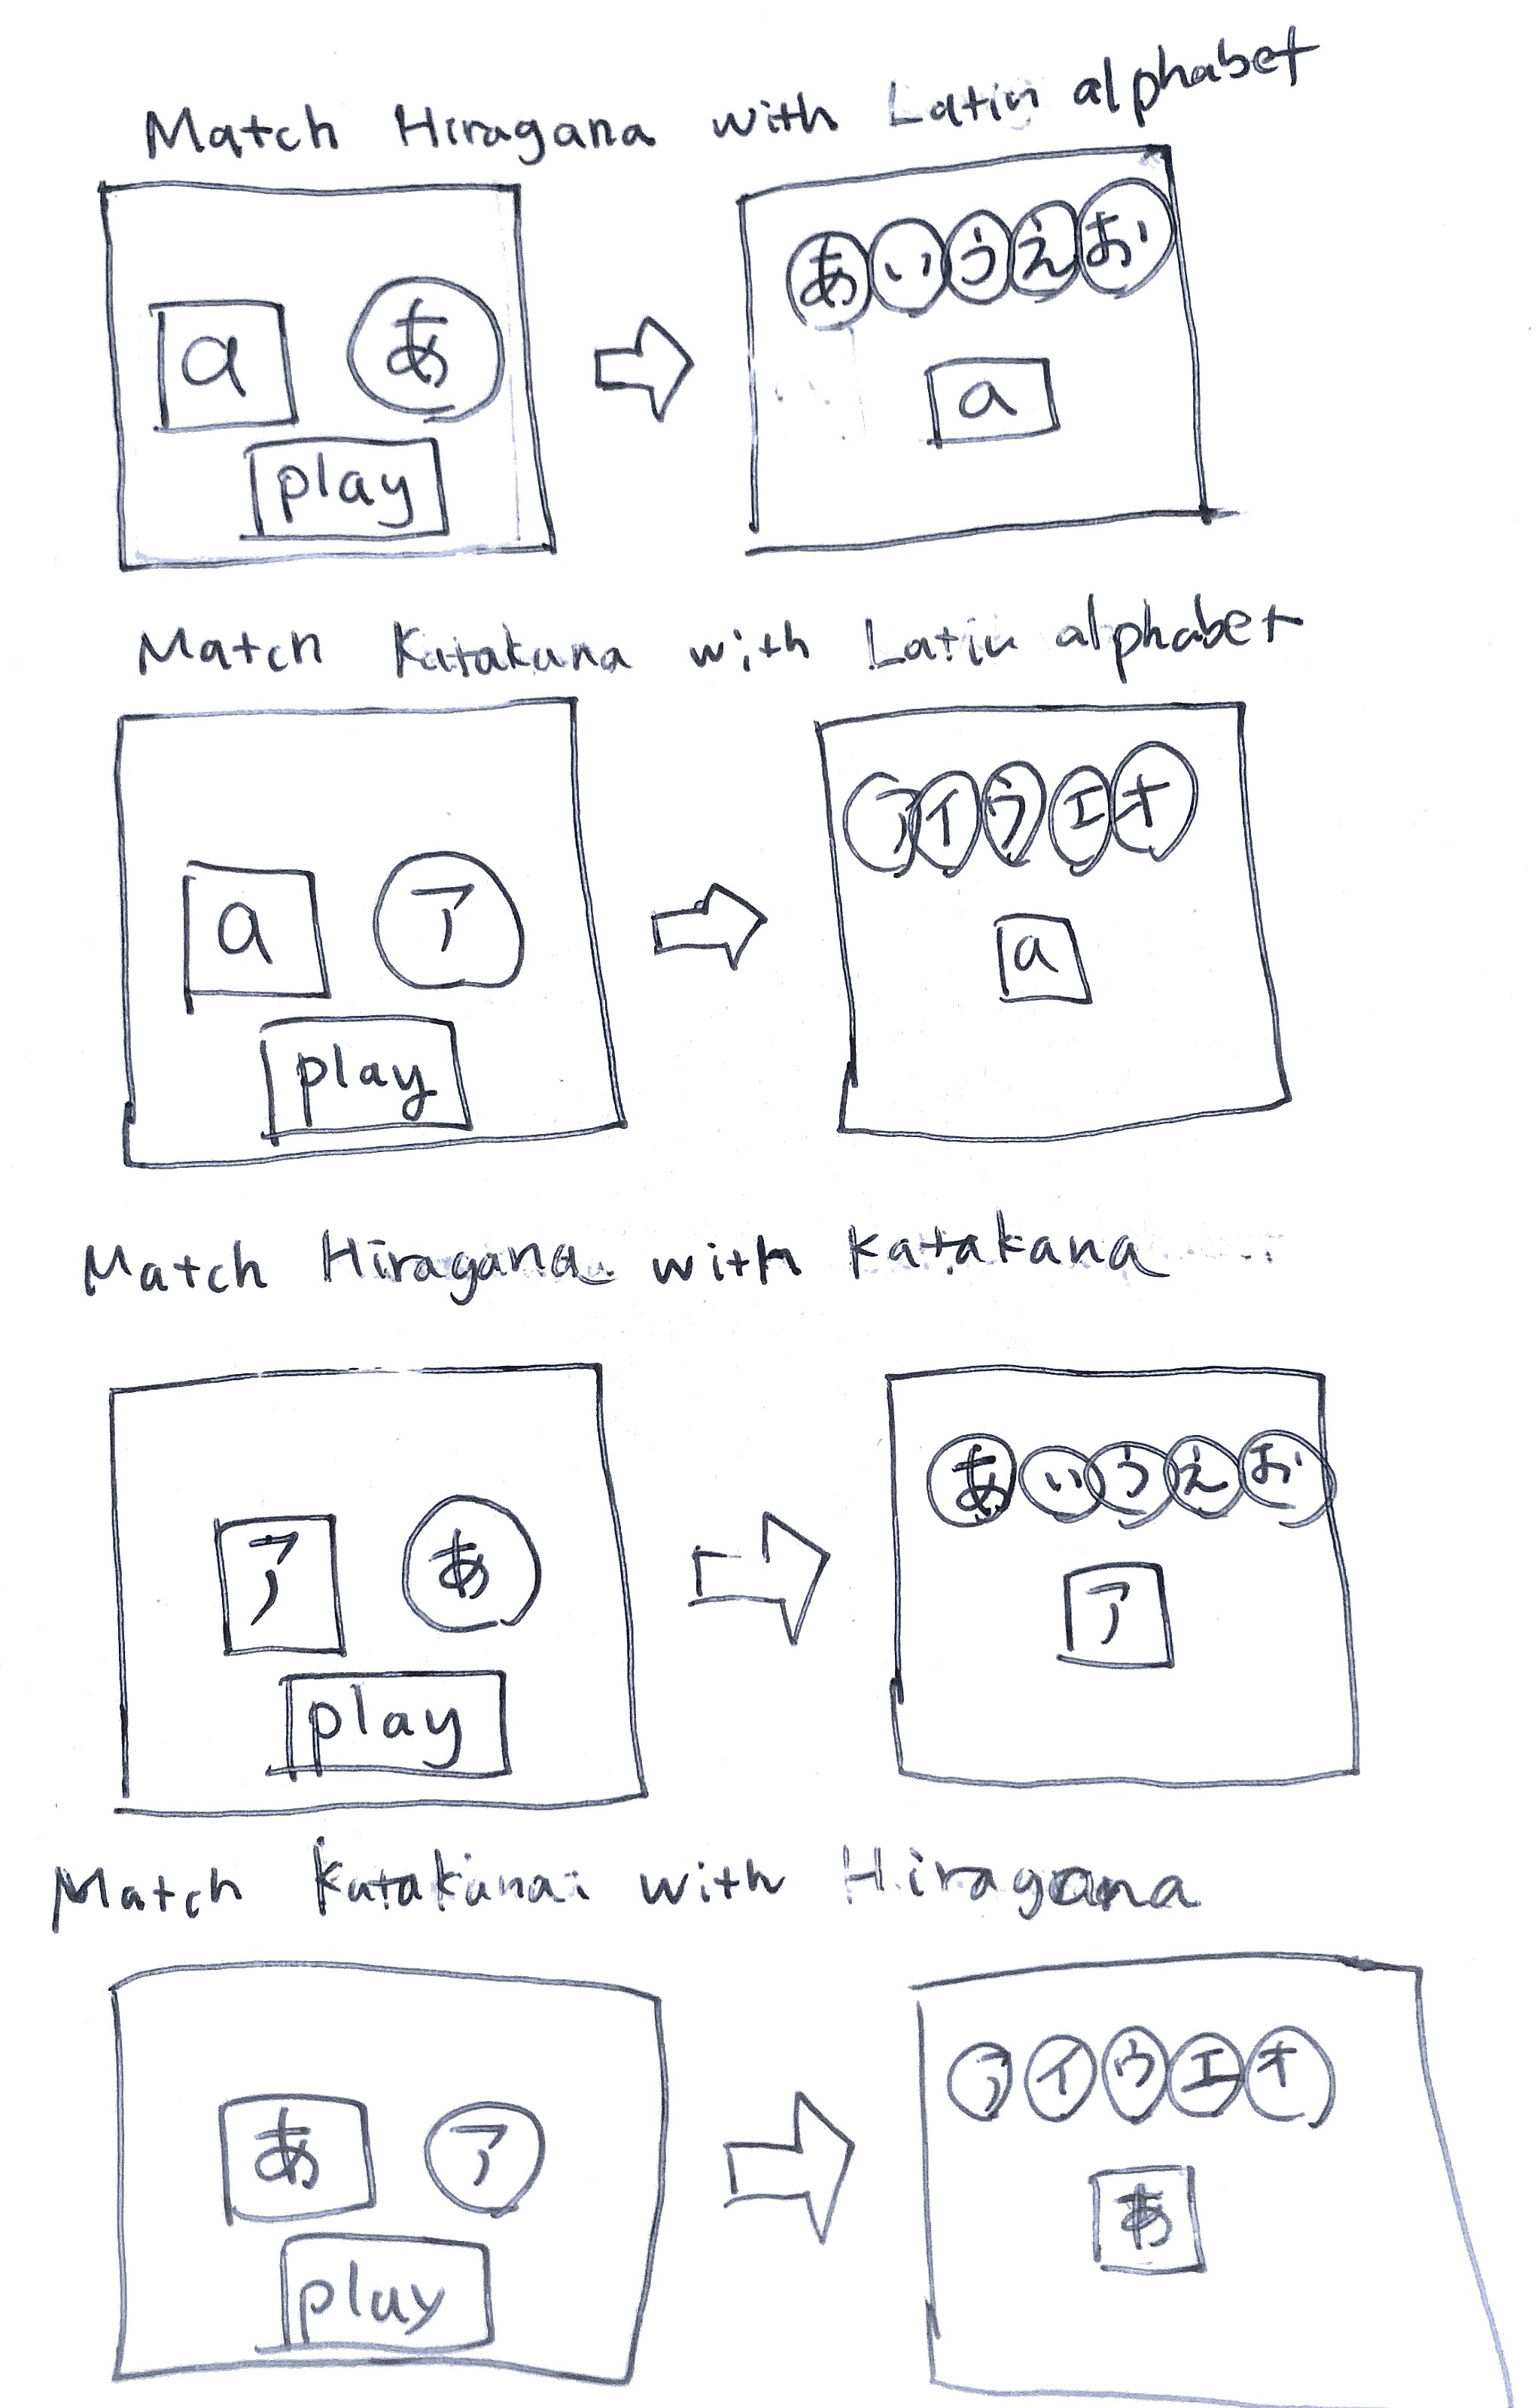 Match Hiragana with Latin alphabet
a あ
play
あいうえお
a
Match Katakana with Latin alphabet
a ア
play
アイウエオ
a
Match Hiragana with Katakana
ア あ
play
あいうえお
ア
Match Katakana with Hiragana
あ ア
play
アイウエオ
あ